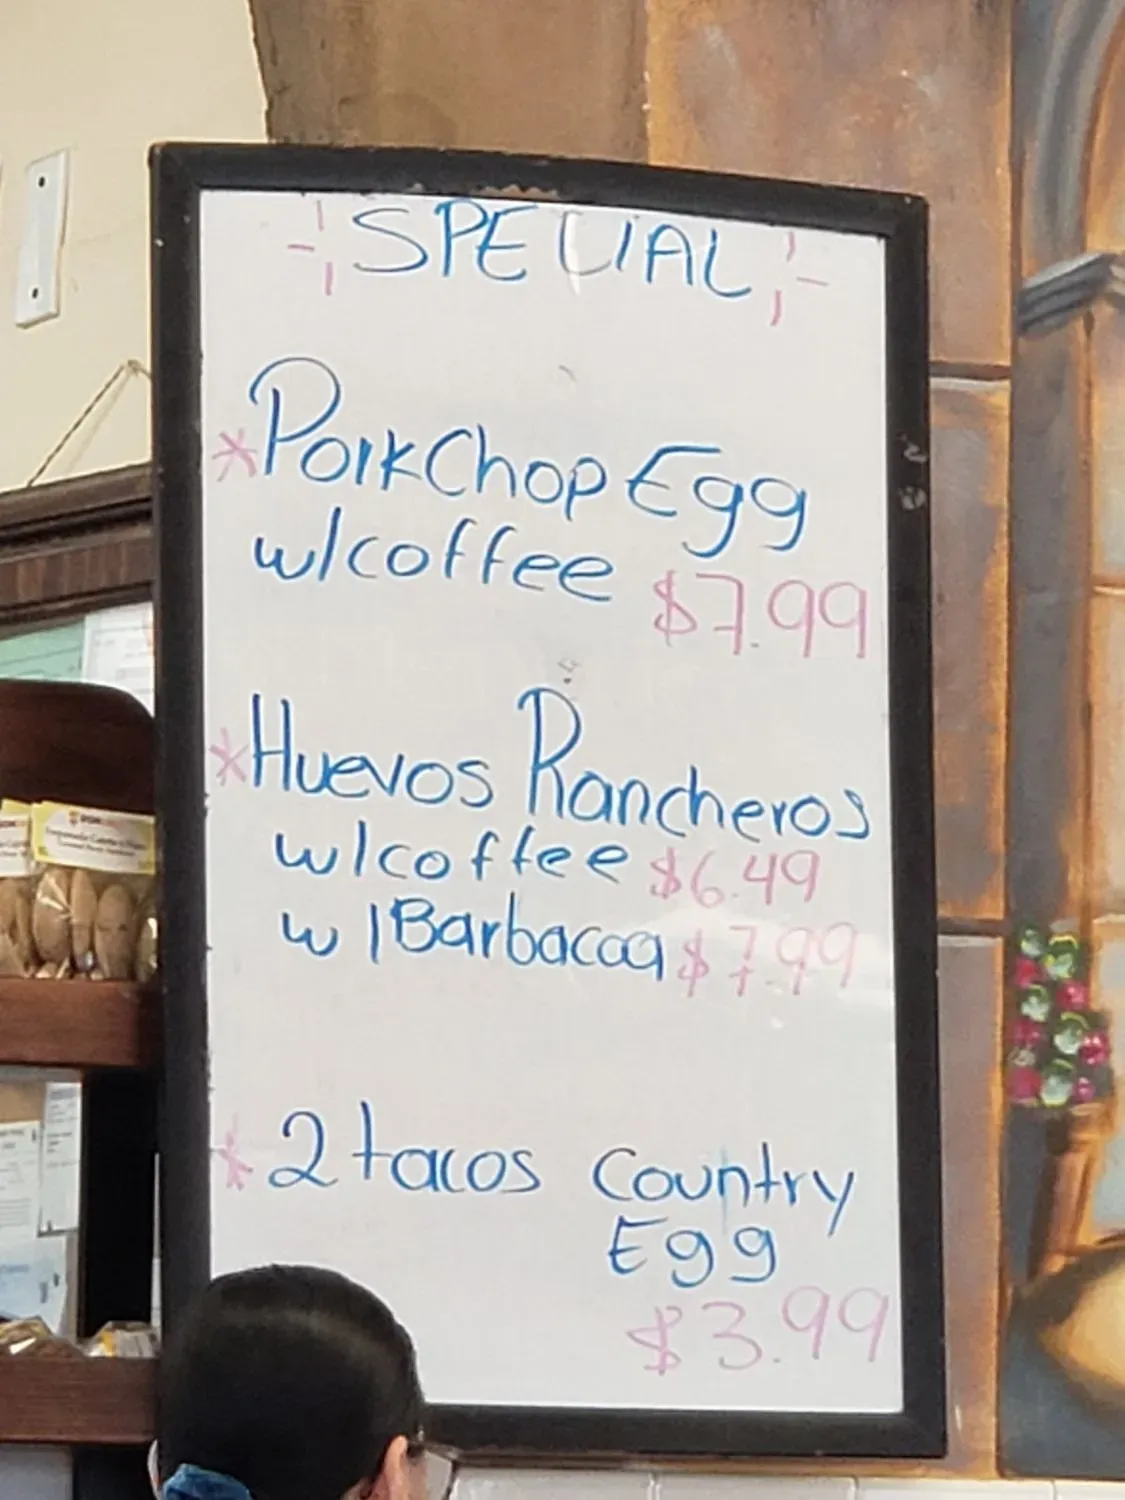 SPECIAL
* PorkChop Egg
w/coffee $7.99
* Huevos Rancheros
w/coffee $6.49
w/Barbacoa $7.99
* 2 tacos Country
Egg
$3.99